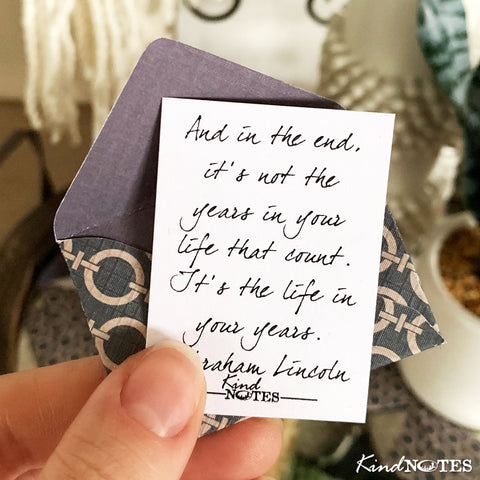 Kind NOTES
And in the end,
it's not the
years in your
life that count.
It's the life in
your years.
raham Lincoln
Kind
NOTES
Kind NOTES